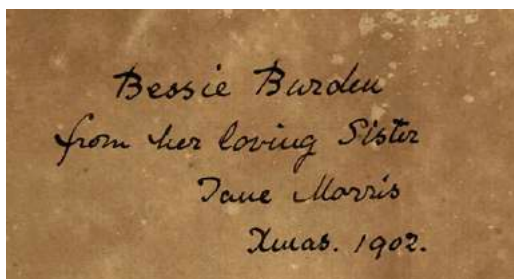 Bessie Burden
from her loving Sister
Jane Morris
Xmas. 1902.